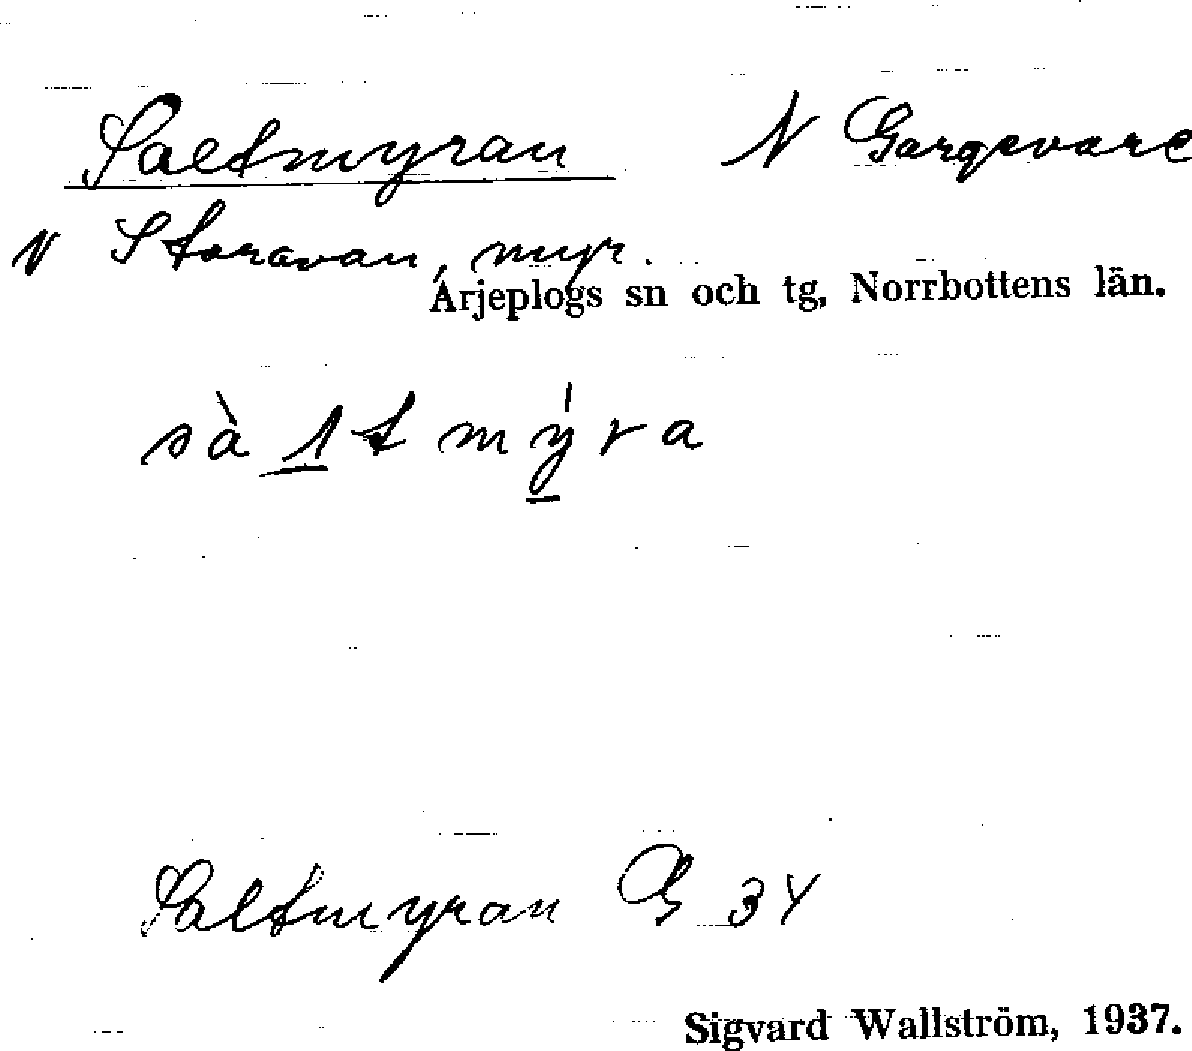 Saltmyran N Gargevare
N Storavan, myr.
Arjeplogs sn och tg, Norrbottens län.
sàltmýra
Saltmyran G 34
Sigvard Wallström, 1937.